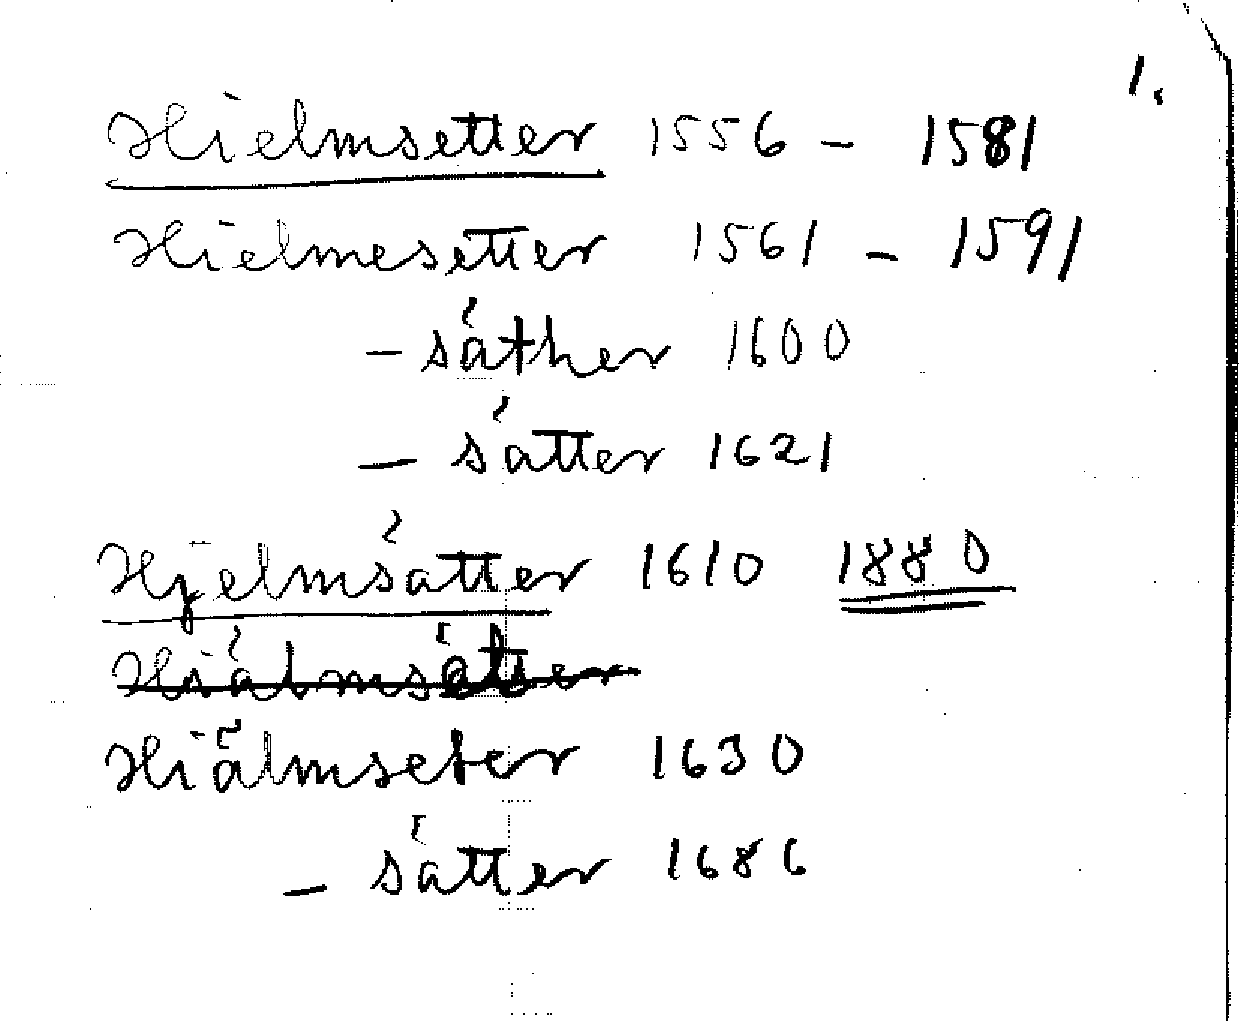 1.
Hielmsetter 1556 - 1581
Hielmesetter 1561 - 1591
- säther 1600
- sätter 1621
Hjelmsätter 1610 1880
Hiälmsätter
Hiälmseter 1630
- sätter 1686